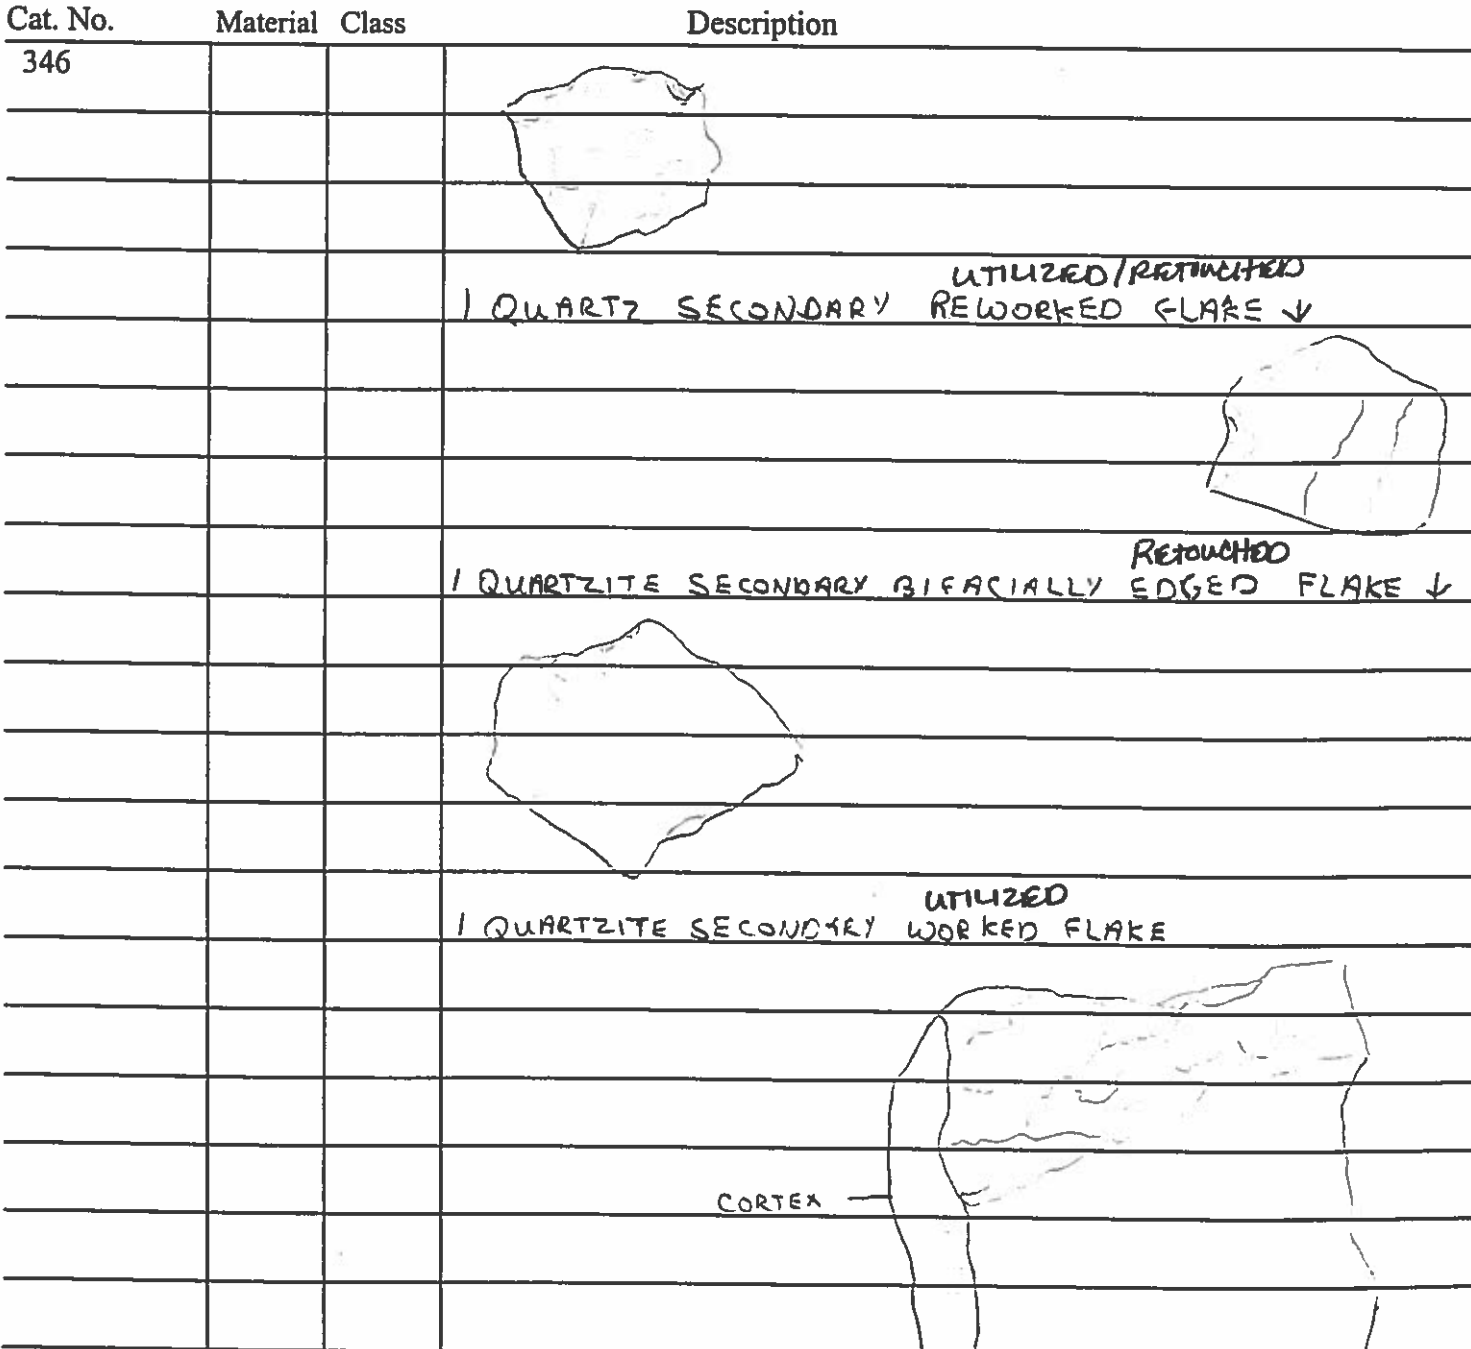 Cat. No. Material Class Description
346
UTILIZED/RETOUCHED
1 QUARTZ SECONDARY REWORKED FLAKE ↓
RETOUCHED
1 QUARTZITE SECONDARY BIFACIALLY EDGED FLAKE ↓
UTILIZED
1 QUARTZITE SECONDARY WORKED FLAKE
CORTEX